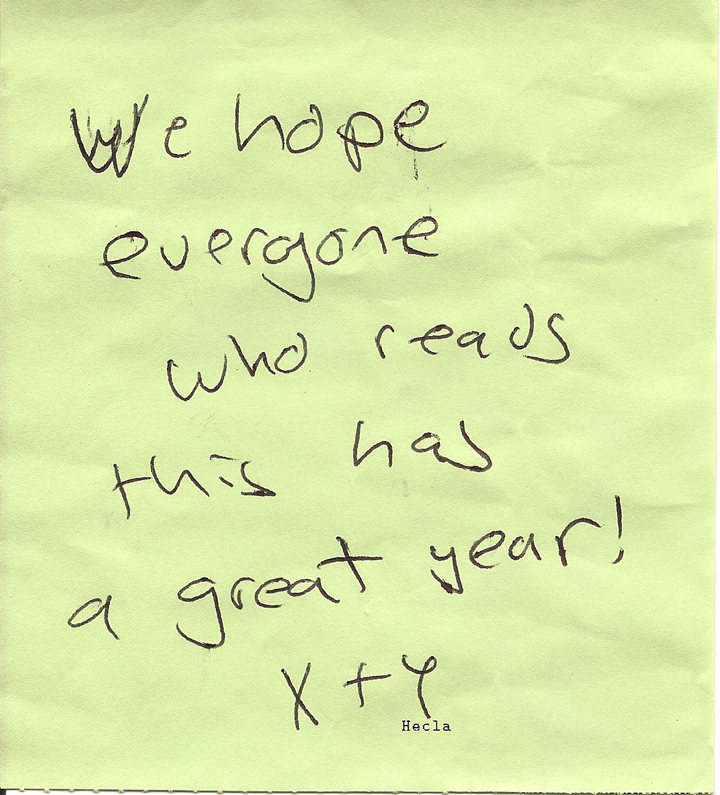 We hope
everyone
who reads
this has
a great year!
X + Y
Hecla